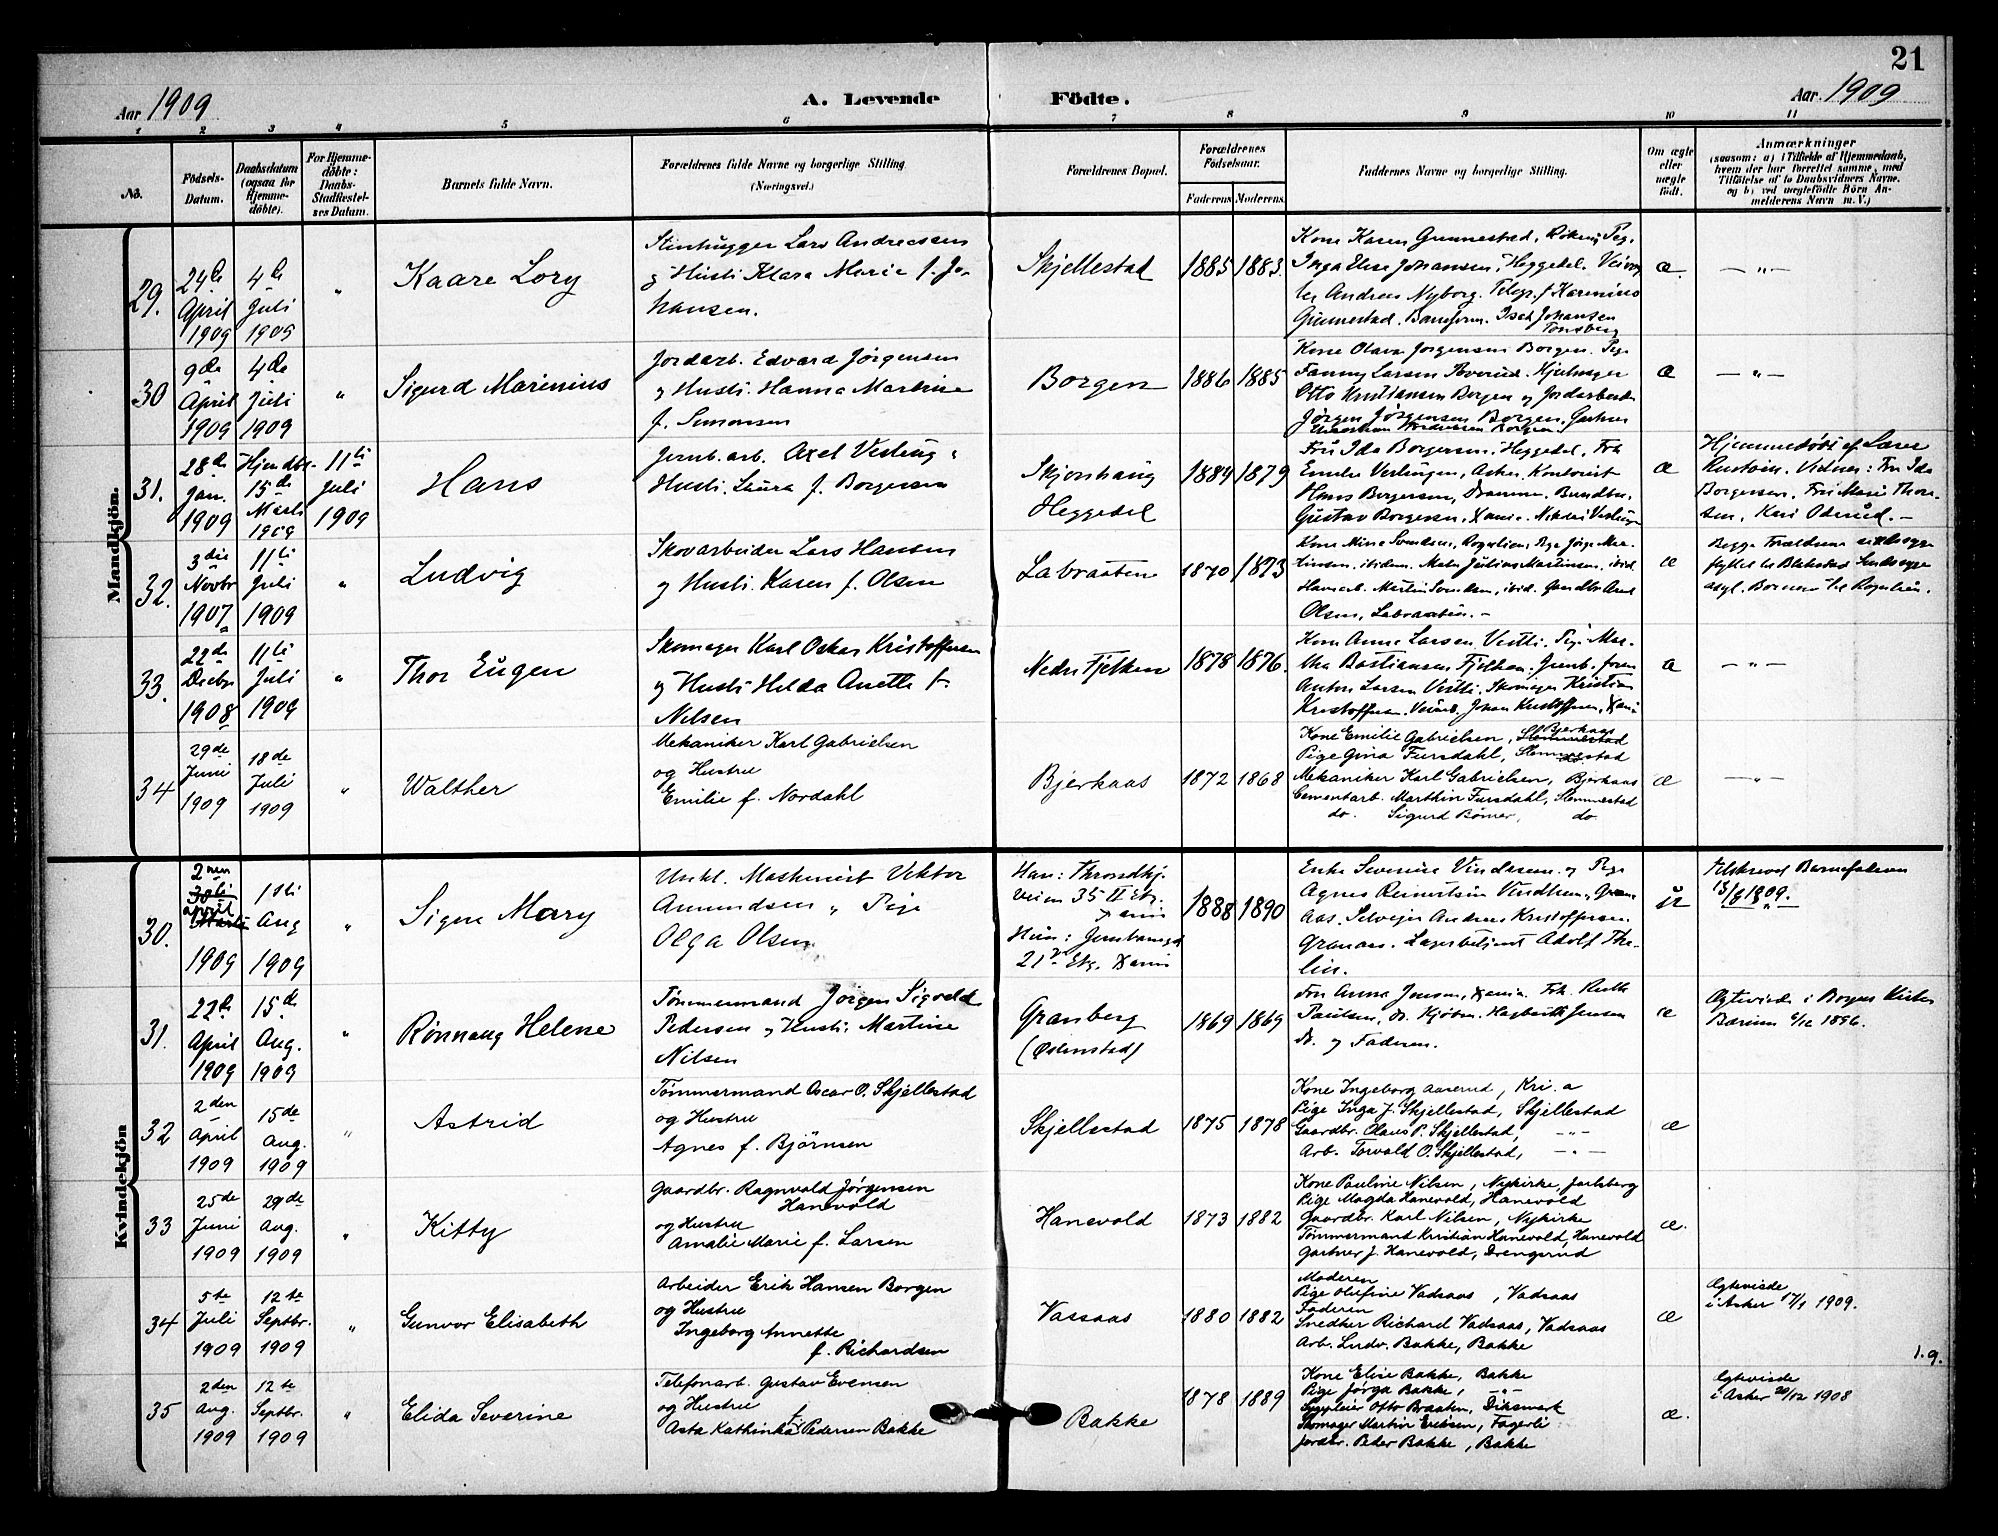 21
Aar 1909
A. Levende
Födte.
Aar 1909
1 2 3 4 5 6 7 8 9 10 11
No.
Födsels-Datum.
Daabsdatum (ogsaa for Hjemme-döbte).
For Hjemme-döbte: Daabs-Stadfæstel-ses Datum.
Barnets fulde Navn.
Forældrenes fulde Navne og borgerlige Stilling.
(Næringsvei.)
Forældrenes Bopæl.
Forældrenes Födselsaar.
Faderens Moderens
Faddernes Navne og borgerlige Stilling.
Om ægte eller uægte födt.
Anmærkninger
(saasom: a) i Tilfælde af Hjemmedaab,
hvem der har forrettet samme, med
Tilföielse af to Daabsvidners Navne,
og b) ved uægtefödte Börn An-
melderens Navn m. V.)
Mandkjön.
29.
24de April 1909
4de Juli 1909
"
Kaare Lory
Stenhugger Lars Andreassen
og Hustru Klara Marie f. Jo-
hansen.
Skjellestad
1885 1883.
Kone Karen Gunnestad, Røken, Pige
Inga Elise Johansen, Heggedal.
Andreas Nyborg.
Gunnestad. Johansen
Tønsberg
æ.
— " —
30
9de April 1909
4de Juli 1909
"
Sigurd Marinius
Jordarb. Edvard Jørgensen
og Hustru Hanna Martine
f. Simonsen
Borgen
1886 1885
Kone Olava Jørgensen Borgen. Pige
Fanny Larsen
Otto Kristiansen Borgen og Jordarbeider
Jørgen Jørgensen Borgen. Gartner
æ
— " —
31.
28de Jan. 1909
Hjemdbt. 15de Marts 1909
11te Juli 1909
Hans
Jernb. arb. Axel Vestling
Hustru Laura f. Borgersen
Skjonhaug
Heggedal
1884 1879
Fru Ida Borgersen, Heggedal, Frk
Emilie Vestlingen, Asker, Kontorist
Hans Borgersen, Drammen.
Gustav Borgersen,
æ
Hjemmedøbt af Lærer
Rustøen. Vidner: Fru Ida
Borgersen, Fru Marie Thor-
sen, Kari Oderud. —
32.
3die Novbr 1907
11te Juli 1909
"
Ludvig
Skovarbeider Lars Hansen
og Hustru Karen f. Olsen
Labraaten
1870 1873
Kone Mina Svendsen,
Julius Martinsen, ibid.
Martin Svendsen, ibid.
Olsen, Labraaten. —
æ
Begge Forældrene sindssyge
flyttet til Blakstad Sindssyge-
asyl.
33.
22de Decbr 1908
11te Juli 1909
"
Thor Eugen
Skomager Karl Oskar Kristoffersen
og Hustru Helda Anette f.
Nilsen
Nedre Fjelken
1878 1876.
Kone Anna Larsen Vestli. Pige Mar-
tha Bastiansen
Anton Larsen Vestli. Skomager Kristian
Kristoffersen. Johan Kristoffersen,
æ
— " —
34
29de Juni 1909
18de Juli 1909
"
Walther
Mekaniker Karl Gabrielsen
og Hustru
Emilie f. Nordahl
Bjerkaas
1872 1868
Kone Emilie Gabrielsen, Bjerkaas
Pige Gina Fursdahl, Slemmestad
Mekaniker Karl Gabrielsen, Bjerkaas
Cementarb. Marthin Fursdahl, Slemmestad
do. Sigurd Bömer, do.
æ
— " —
Kvindekjön
30.
2nen april 1909
1ste Aug 1909
"
Signe Mary
Ungkl. Maskinist Viktor
Amundsen " Pige
Olga Olsen
Han: Throndhj.
veien 35 II Etg.
Xania
Hun: Jernbanegd
21 Etg. Xania
1888 1890
Enke Severine Vindasen og Pige
Agnes Vindhen, Gran-
aas. Selveier Andreas Kristoffersen,
Granaas. Lagerbetjent Adolf The-
lin.
u
13/8 1909.
31.
22de April 1909
15de Aug. 1909
"
Rönnaug Helene
Tømmermand Jørgen Sigvald
Pedersen og Hustru Martine
Nilsen
Granberg
(Østenstad)
1869 1869
Fru Anna Jensen, Xania. Frk. Ruth
Paulsen, Jensen
og Faderen.
æ
Ægteviede i Borgen Kirke
Bærum 1896.
32
2den April 1909
15de Aug. 1909
"
Astrid
Tømmermand Oscar O. Skjellestad
og Hustru
Agnes f. Björnsen
Skjellestad
1875 1878
Kone Ingeborg Aaserud, Kri. a
Pige Inga J. Skjellestad, Skjellestad
Gaardbr. Olaus P. Skjellestad, — " —
Arb. Torvald O. Skjellestad, — " —
æ
33
25de Juni 1909
29de Aug. 1909
"
Kitty
Gaardbr. Ragnvald Jörgensen
Hanevold
og Hustru
Amalie Marie f. Larsen
Hanevold
1873 1882
Kone Pauline Nilsen, Nykirke, Jarlsberg
Pige Magda Hanevold, Hanevold
Gaardbr. Karl Nilsen, Nykirke
Tømmermand Kristian Hanevold, Hanevold
Gartner J. Hanevold, Drengsrud
æ.
34
5te Juli 1909
12te Septbr. 1909
"
Gunvor Elisabeth
Arbeider Erik Hansen Borgen
og Hustru
Ingeborg Annette
f. Richardsen
Vassaas
1880 1882
Moderen
Pige Olufine Vadsaas, Vadsaas
Faderen
Snedker Richard Vadsaas, Vadsaas
Arb. Ludv. Bakke, Bakke
æ
Ægteviede
i Asker 17/1 1909.
1.9.
35
2den Aug. 1909
12te Septbr. 1909
"
Elida Severine
Telefonarb. Gustav Evensen
og Hustru
Asta Kathinka f. Pedersen Bakke
Bakke
1878 1889
Kone Elise Bakke, Bakke
Pige Jørga Bakke, — " —
Otto Braaten, Dikemark
Skomager Martin Eriksen, Fagerli
Jordbr. Peder Bakke, Bakke
æ.
Ægteviede
i Asker 20/12 1908